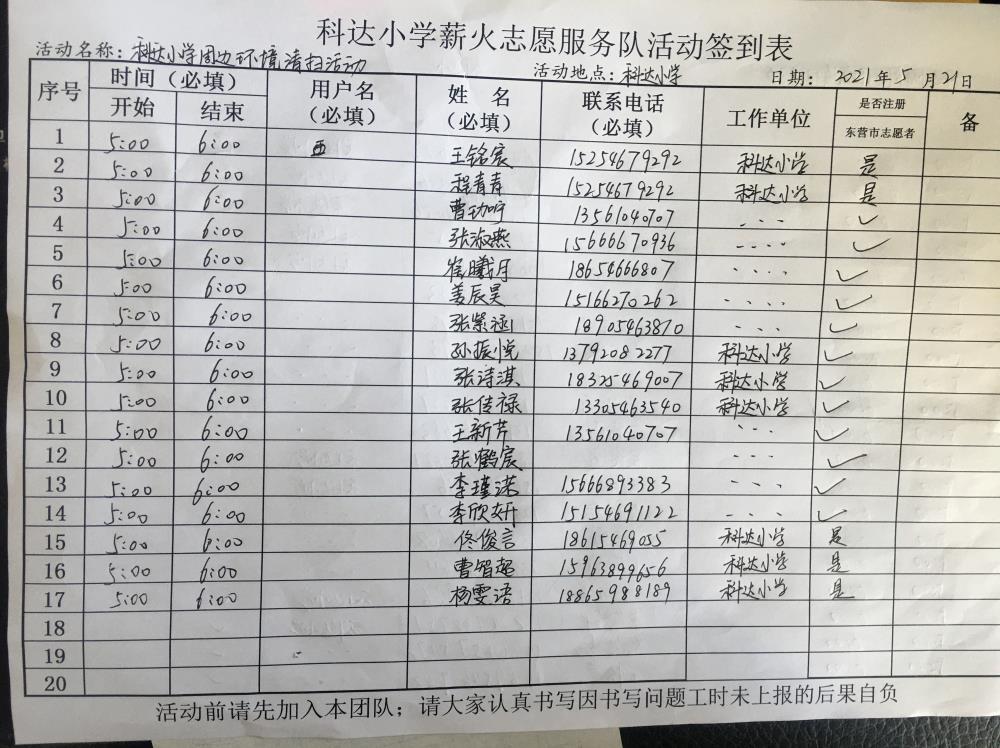 科达小学薪火志愿服务队活动签到表
活动名称：科达小学周边环境清扫活动 活动地点：科达小学 日期：2021年5月21日
序号 时间（必填） 用户名（必填） 姓名（必填） 联系电话（必填） 工作单位 是否注册 备
开始 结束 东营市志愿者
1 5:00 6:00 王铭宸 15254679292 科达小学 是
2 5:00 6:00 程青青 15254679292 科达小学 是
3 5:00 6:00 13561040707 - - ✓
4 5:00 6:00 张淑燕 15666670936 - - - - ✓
5 5:00 6:00 崔曦月 18654666807 - - - - ✓
6 5:00 6:00 姜辰昊 15166270262 - - - - ✓
7 5:00 6:00 张紫涵 18905463870 - - - - ✓
8 5:00 6:00 孙振悦 13792082277 科达小学 ✓
9 5:00 6:00 张诗淇 18325469007 科达小学 ✓
10 5:00 6:00 张传禄 13305463540 科达小学 ✓
11 5:00 6:00 王新芹 13561040707 - - - ✓
12 5:00 6:00 张鹤宸 - - - - ✓
13 5:00 6:00 李瑾诺 15666893383 - - - - ✓
14 5:00 6:00 李欣妍 15154691122 - - - - ✓
15 5:00 6:00 佟俊言 18615469055 科达小学 是
16 5:00 6:00 曹智超 15963899656 科达小学 是
17 5:00 6:00 杨雯语 18865988189 科达小学 是
18
19
20
活动前请先加入本团队；请大家认真书写因书写问题工时未上报的后果自负